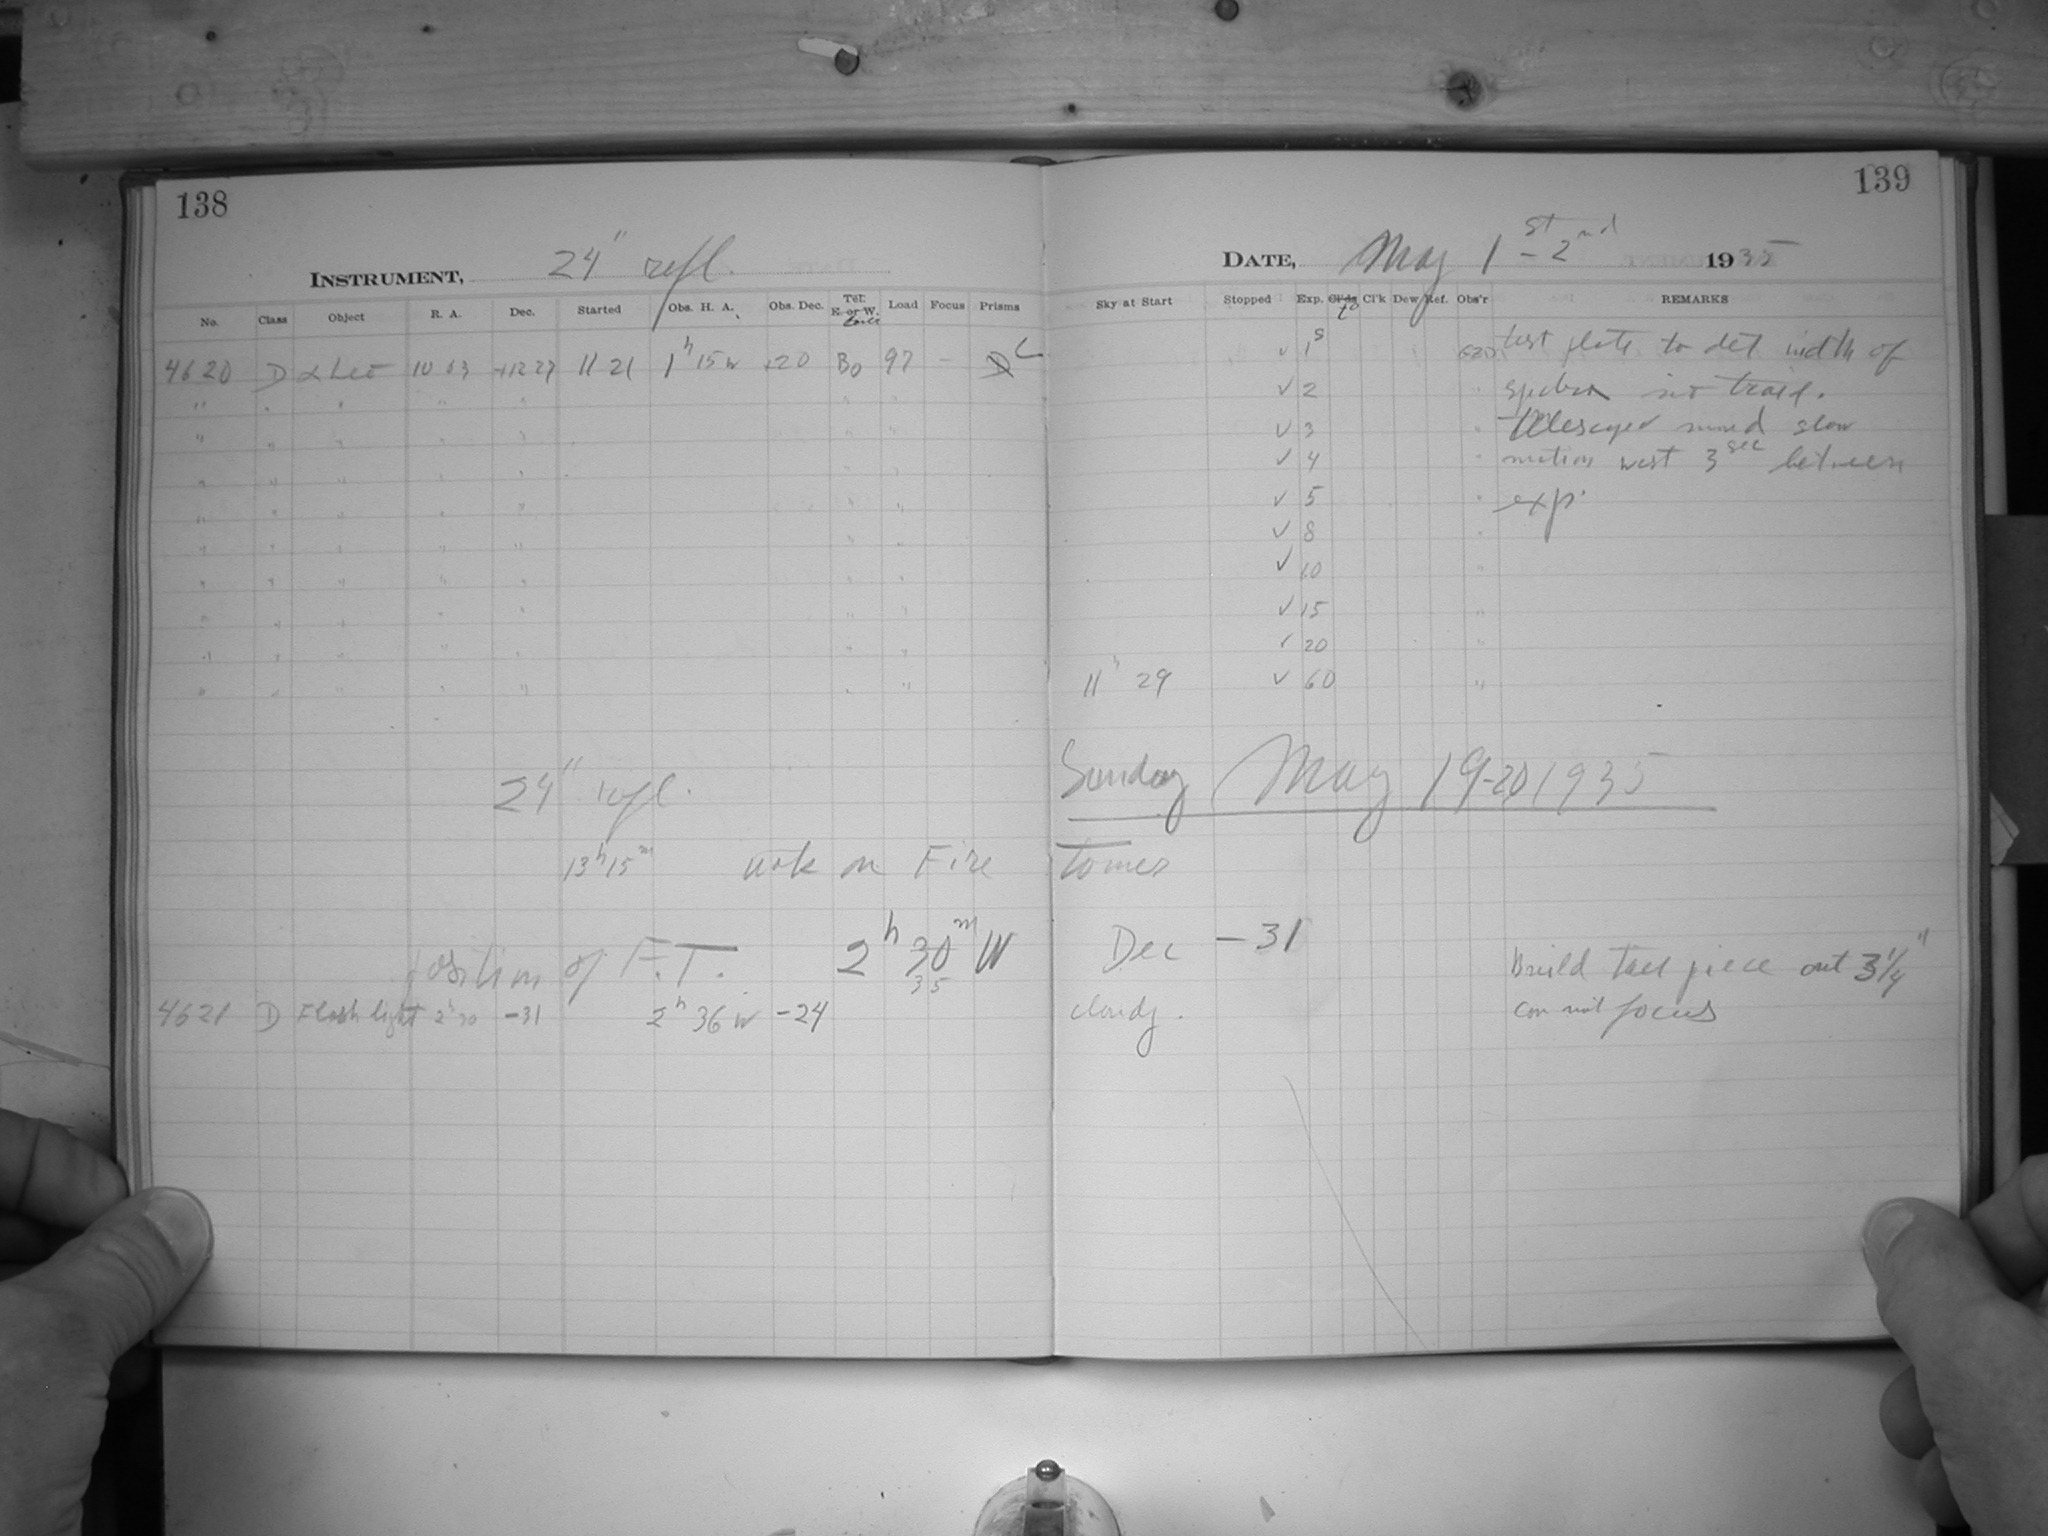 138
INSTRUMENT, 24" refl.
No. Class Object R. A. Dec. Started Obs. H. A. Obs. Dec. Tel. E. or W. Load Focus Prisms
4620 D α Leo 10 03 +12 27 11 21 1h 15 W +20 Bo 97 - C
" " " " " " "
" " " " " " "
" " " " " " "
" " " " " " "
" " " " " " "
" " " " " " "
" " " " " " "
" " " " " " "
" " " " " " "
24" refl.
13h 15m work on Fire
position of F.T. 2h 30m W
35
4621 D Flash light 2h 30 -31 2h 36 W -24
139
DATE, May 1st - 2nd 1935
Sky at Start Stopped Exp. Cl'ds Cl'k Dew Ref. Obs'r REMARKS
✓ 1s test plate to det width of
✓ 2 " spectra not trail.
✓ 3 " Telescope moved slow
✓ 4 " motion west 3sec between
✓ 5 " exp.
✓ 8 "
✓ 10 "
✓ 15 "
✓ 20 "
11h 29 ✓ 60 "
Sunday May 19-20 1935
tower
Dec -31
Build tail piece out 3¼"
cloudy. can not focus